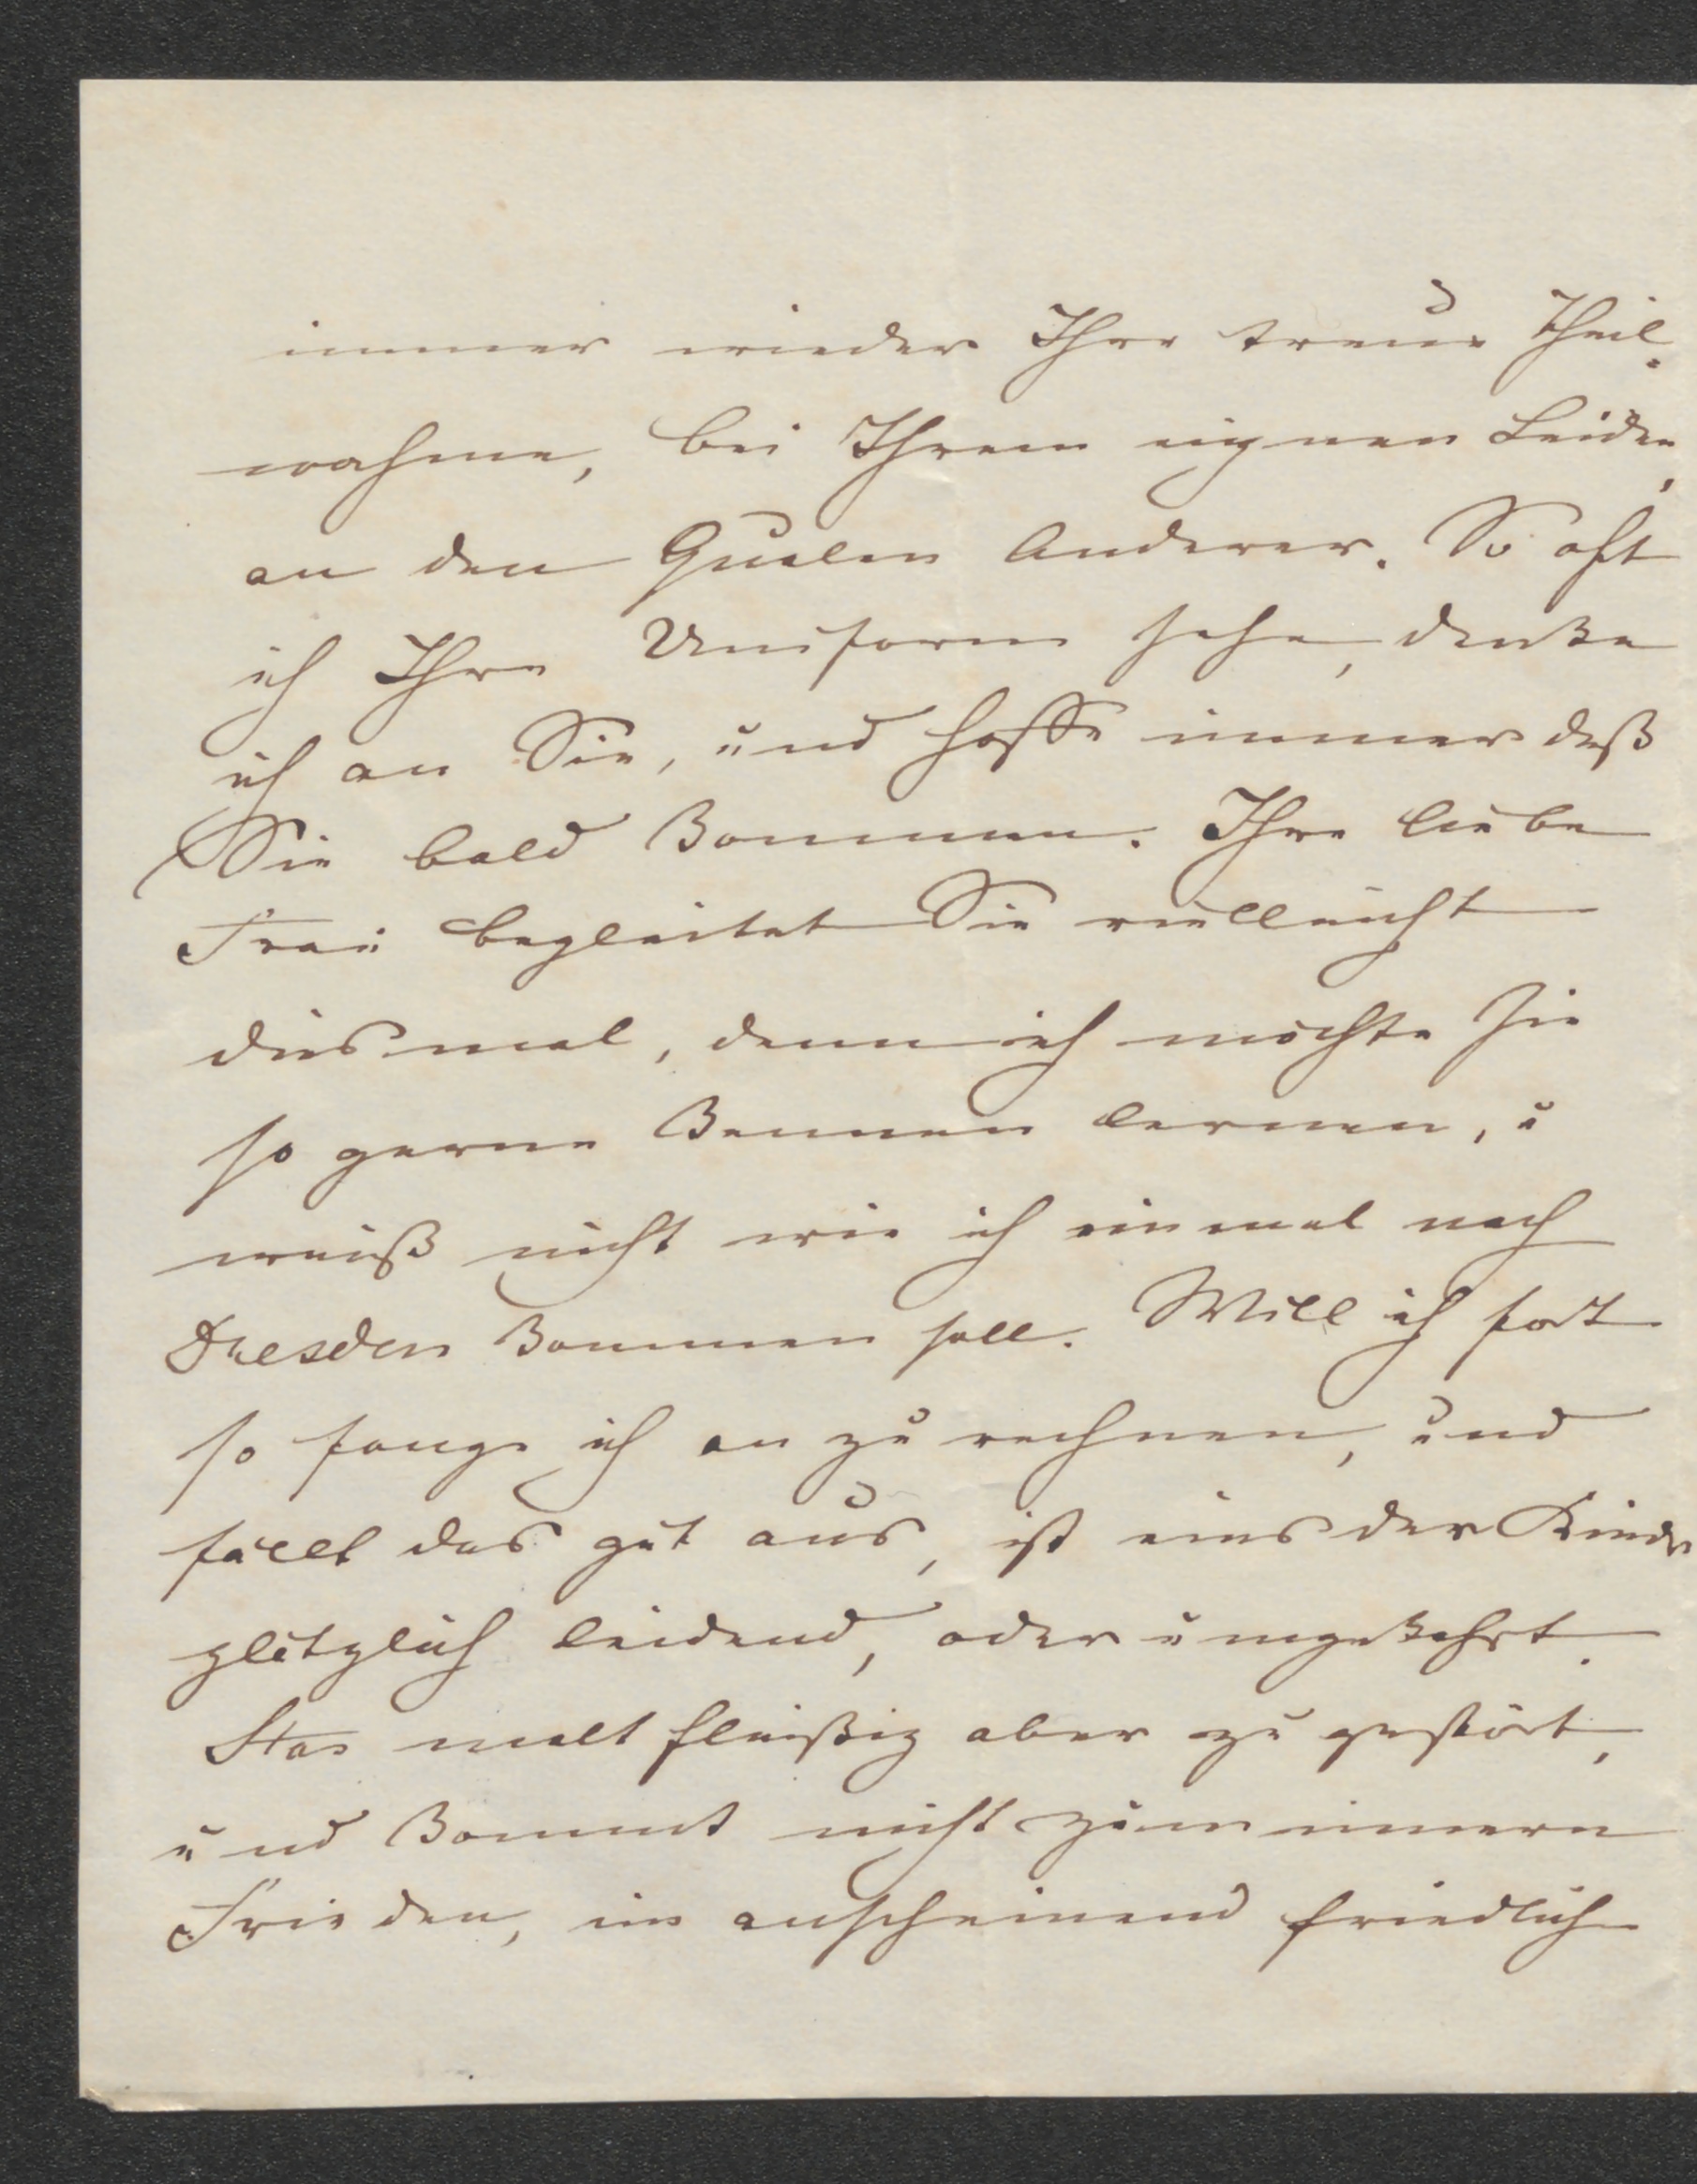 immer wieder Ihre treue Theil-
nahme, bei Ihrem eignen Leiden,
an den Qualen Anderer. So oft
ich Ihre Uniform sehe, denke
ich an Sie, und hoffe immer daß
Sie bald kommen. Ihre liebe
Frau begleitet Sie vielleicht
diesmal, denn ich möchte Sie
so gerne kennen lernen, u
weiß nicht wie ich einmal nach
Dresden kommen soll. Will ich fort
so fange ich an zu rechnen, und
fällt das gut aus, ist eins der Kinder
plötzlich leidend, oder umgekehrt.
Stas malt fleißig aber zu gestört,
und kommt nicht zum innern
Frieden, im anscheinend friedlich